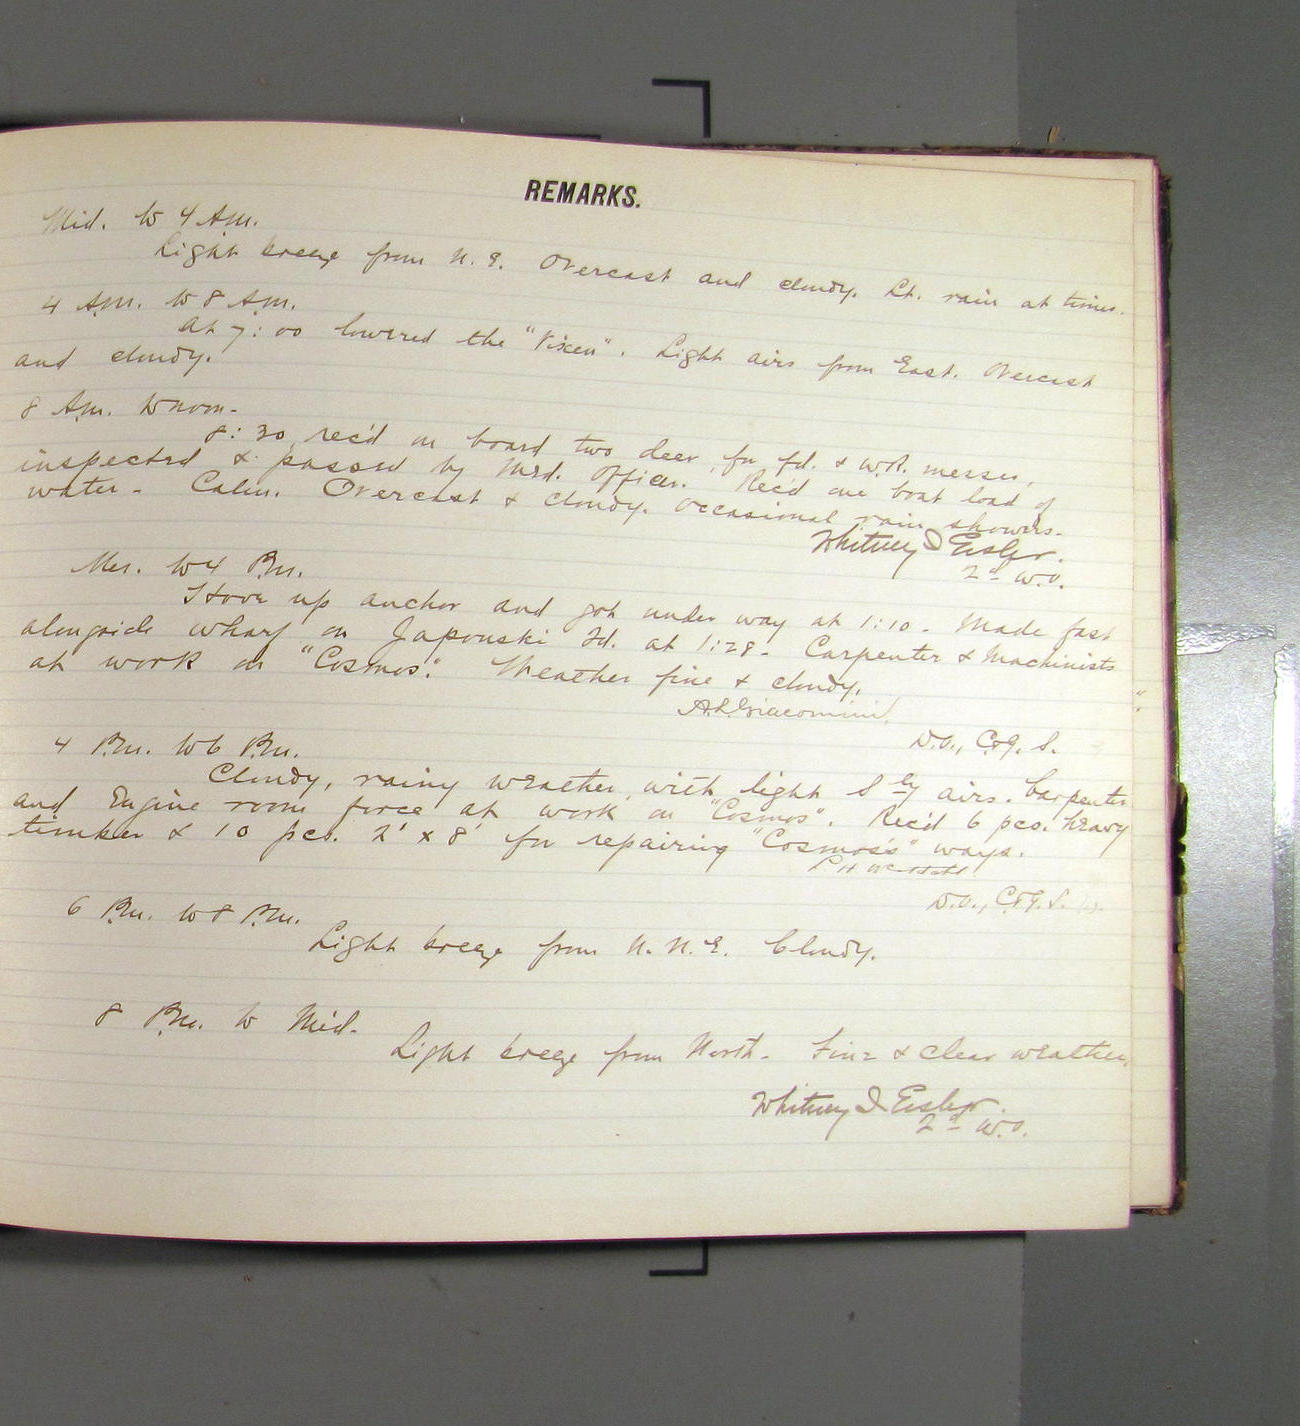 REMARKS.
Mid. to 4 A.m.
Light breeze from N. E. Overcast and cloudy. Lt. rain at times.
4 A.m. to 8 A.m.
At 7:00 lowered the "Vixen". Light airs from East. Overcast
and cloudy.
8 A.m. to noon-
8:30 rec'd on board two deer, for fd. & W.R. messes,
inspected & passed by Med. Officer. Rec'd one boat load of
water - Calm. Overcast & cloudy. Occasional rain showers.
Whitney I Eisler.
2d W.O.
Mer. to 4 P.m.
Hove up anchor and got under way at 1:10 - Made fast
alongside wharf on Japonski Id. at 1:28 - Carpenter & Machinists
at work on "Cosmos". Weather fine & cloudy.
A.L. Giacomini,
D.O., C.&G. S.
4 P.m. to 6 P.m.
Cloudy, rainy weather, with light S'ly airs. Carpenter
and Engine room force at work on "Cosmos". Rec'd 6 pcs. heavy
timber & 10 pcs. 2' x 8' for repairing "Cosmos's" ways.
D.O., C.&G. S.
6 P.m. to 8 P.m.
Light breeze from N. N. E. Cloudy.
8 P.m. to Mid.
Light breeze from North - Fine & clear weather.
Whitney I Eisler.
2d W.O.